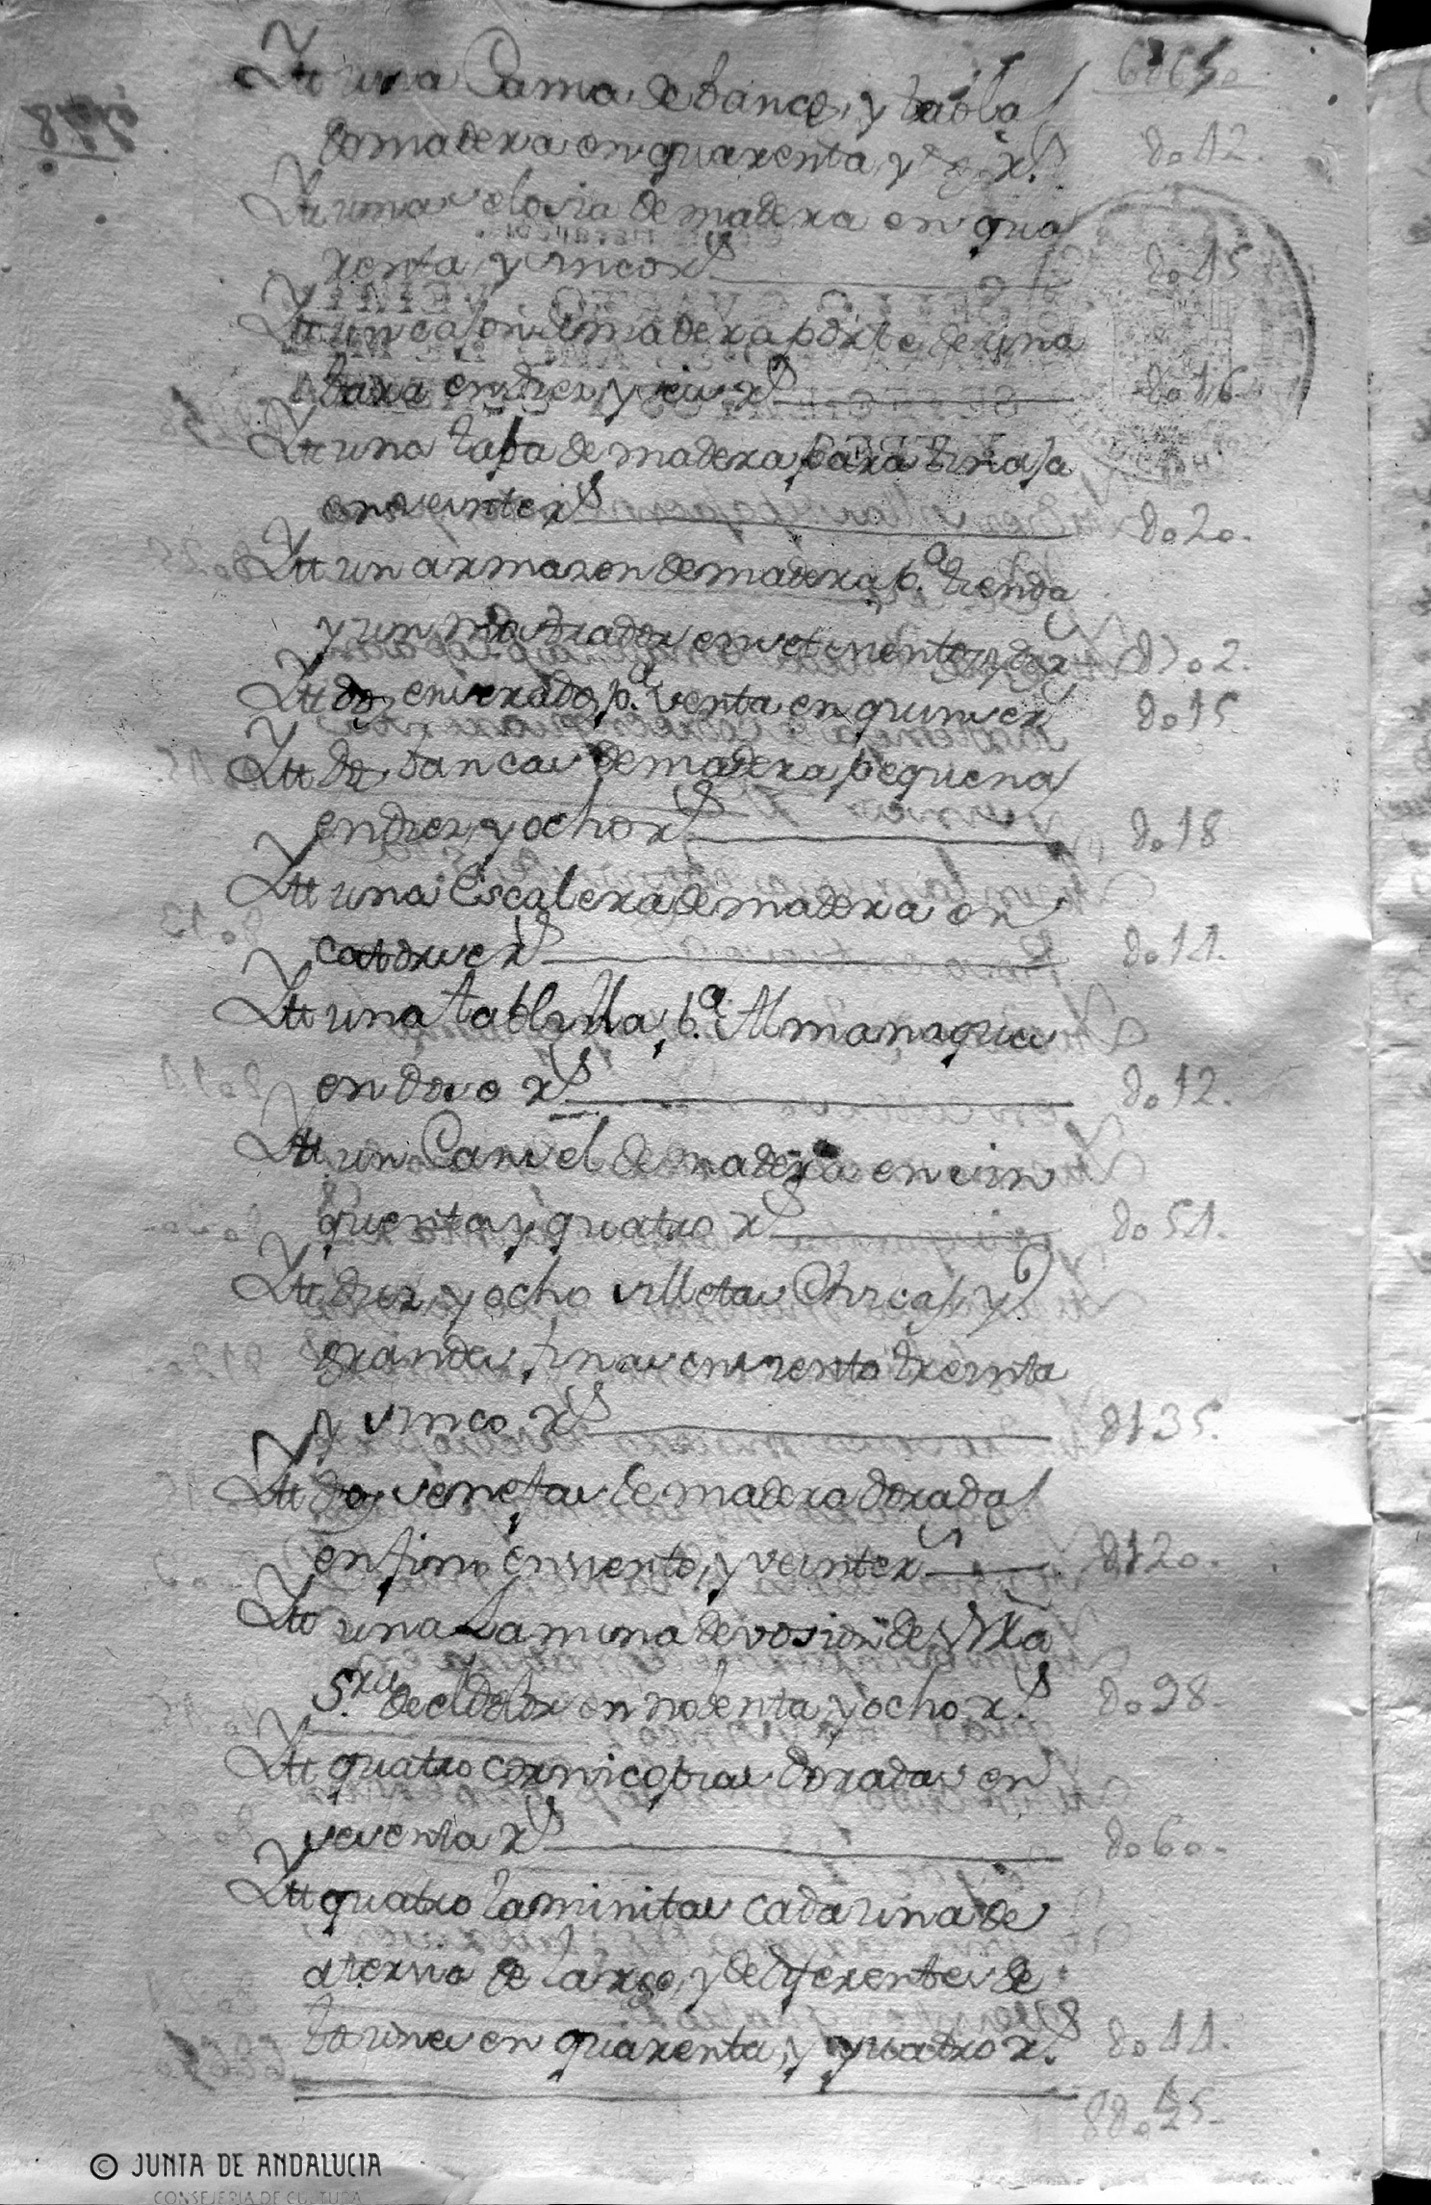 Itt una Cama de bancos, y tabla 6865o
de madera en quarenta, y dos rs. 8o42.
Itt una celosia de madera en qua
renta y cinco rs 8o45
Itt un cason de madera porte de una
bara en diez y seis rs 8o16
Itt una tapa de madera para tinaja
en veinte rs 8o20.
Itt un armazon de madera pa. tienda
y un mostrador en setecientos y dos rs 87o2.
Itt dos enserados pa. venta en quince rs 8o15
Itt dos bancas de madera pequenas
en diez y ocho rs 8o18
Itt una Escalera de madera en
catorce rs 8o14.
Itt una tablilla pa. Almanaques
en doce rs 8o12.
Itt un Cancel de madera en cin
quenta y quatro rs 8o54.
Itt diez y ocho silletas Chicas, y
grandes, finas en ciento treinta
y cinco rs 8135.
Itt dos senefas de madera doradas
en fino en ciento, y veinte rs 8120.
Itt una Lamina devosion de Ntra
Sra. de el dolor en nobenta, y ocho rs. 8o98.
Itt quatro cornicopias doradas en
sesenta rs 8o60.
Itt quatro laminitas cada una de
a tercia de largo, y de diferentes de
bociones en quarenta, y quatro rs. 8o44.
© JUNTA DE ANDALUCIA
CONSEJERIA DE CULTURA